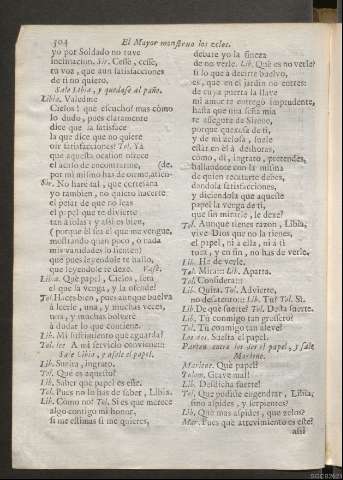 304 El Mayor monstruo los zelos.
yo por Soldado no tuve
inclinacion. Sir. Cesse, cesse,
tu voz, que aun satisfacciones
de ti no quiero.
Sale Libia, y quedase al paño.
Libia. Valedme
Cielos! que escucho? mas còmo
lo dudo, pues claramente
dice que la satisface
la que dice que no quiere
oir satisfacciones? Tol. Ya
que aquesta ocasion ofrece
el acaso de encontrarme, (de,
por mi mismo has de
Sir. No harè tal, que cortesana
yo tambien, no quiero hacerte
el pesar de que no leas
el papel que te divierte
tan à solas; y assi es bien,
(porque si sea el que me vengue,
mostrando quan poco, ò nada
mis vanidades lo sienten)
que pues leyendole te hallo,
que leyendole te dexe. Vase.
Libia. Què papel, Cielos, serà
el que la venga, y la ofende?
Tol. Haces bien, pues aunque buelva
à leerle, una, y muchas veces,
una, y muchas bolverè
à dudar lo que contiene.
Lib. Mi sufrimiento què aguarda?
Tol. lee A mi servicio conviene::-
Sale Libia, y asele el papel.
Lib. Suelta, ingrato.
Tol. Què es aquesto?
Lib. Saber què papel es este.
Tol. Pues no le has de saber, Libia.
Lib. Còmo no? Tol. Si es que merece
algo contigo mi honor,
si me estimas si me quieres,
debate yo la fineza
de no verle. Lib. Què es no verle?
si lo que à decirte buelvo,
es, que en el jardin no entres:
de cuya puerta la llave
mi amor te entregò imprudente,
hasta que una seña mia
te assegure de Sirene,
porque quexosa de ti,
y de mi zelosa, suele
estàr en èl à deshoras,
còmo, di, ingrato, pretendes,
hallandote con la misma
de quien recatarte debes,
dandola satisfacciones,
y diciendola que aqueste
papel la venga de ti,
que sin mirarle, le dexe?
Tol. Aunque tienes razon, Libia,
vive Dios que no la tienes,
el papel, ni à ella, ni à ti
toca, y en fin, no has de verle.
Lib. He de verle.
Tol. Mira::- Lib. Aparta.
Tol. Considera::-
Lib. Quita. Tol. Advierte,
no desatento::- Lib. Tu? Tol. Si.
Lib. De què suerte? Tol. De esta suerte.
Lib. Tù conmigo tan grossero?
Tol. Tù conmigo tan aleve?
Los dos. Suelta el papel.
Parten entre los dos el papel, y sale
Mariene.
Mariene. Què papel?
Tolom. Grave mal!
Lib. Desdicha fuerte!
Tol. Que pudiste engendrar, Libia,
sino aspides, y serpientes?
Lib. Què mas aspides, que zelos?
Mar. Pues què atrevimiento es este?
assi